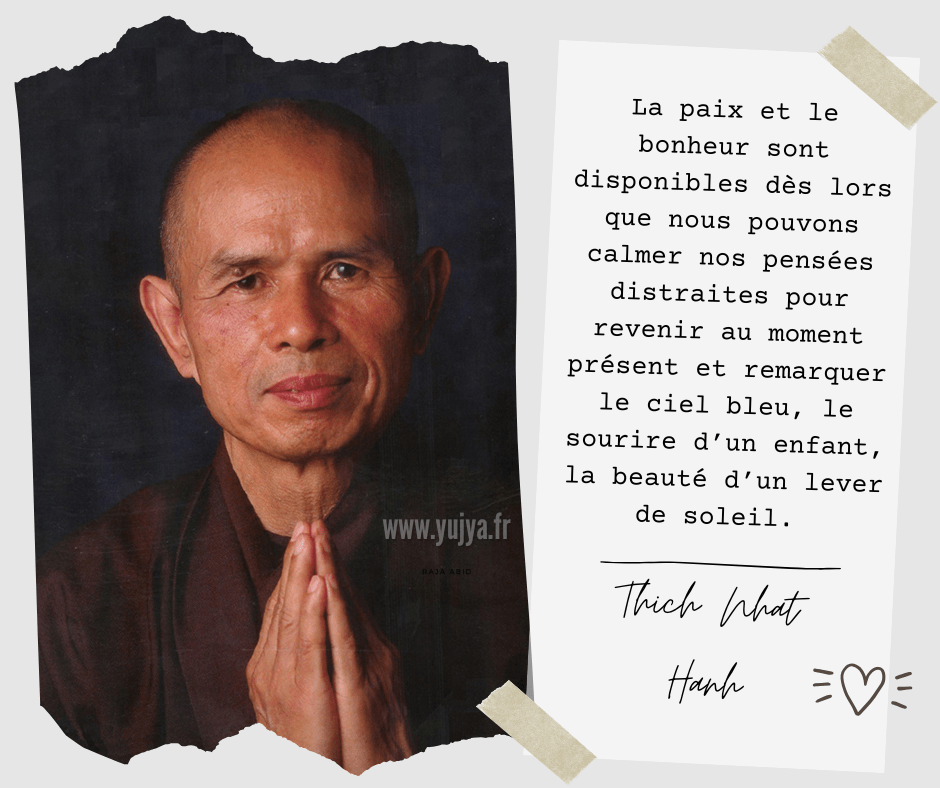 La paix et le
bonheur sont
disponibles dès lors
que nous pouvons
calmer nos pensées
distraites pour
revenir au moment
présent et remarquer
le ciel bleu, le
sourire d’un enfant,
la beauté d’un lever
de soleil.
Thich Nhat
Hanh
www.yujya.fr
RAJA ABID